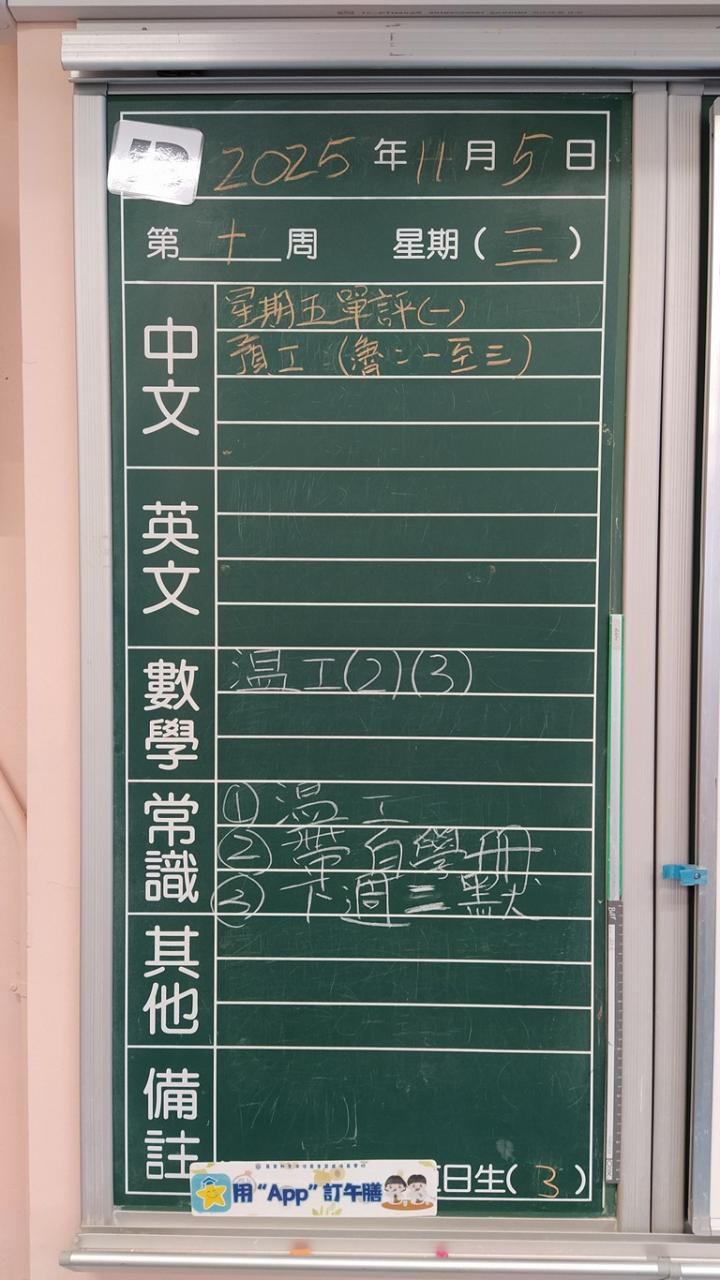 2025年11月5日
第十周 星期(三)
中文
星期五單評(一)
預工(魯:一至三)
英文
數學
温工(2)(3)
常識
①温工
②帶自學冊
③下週二默
其他
備註
日生(3)
用“App”訂午膳